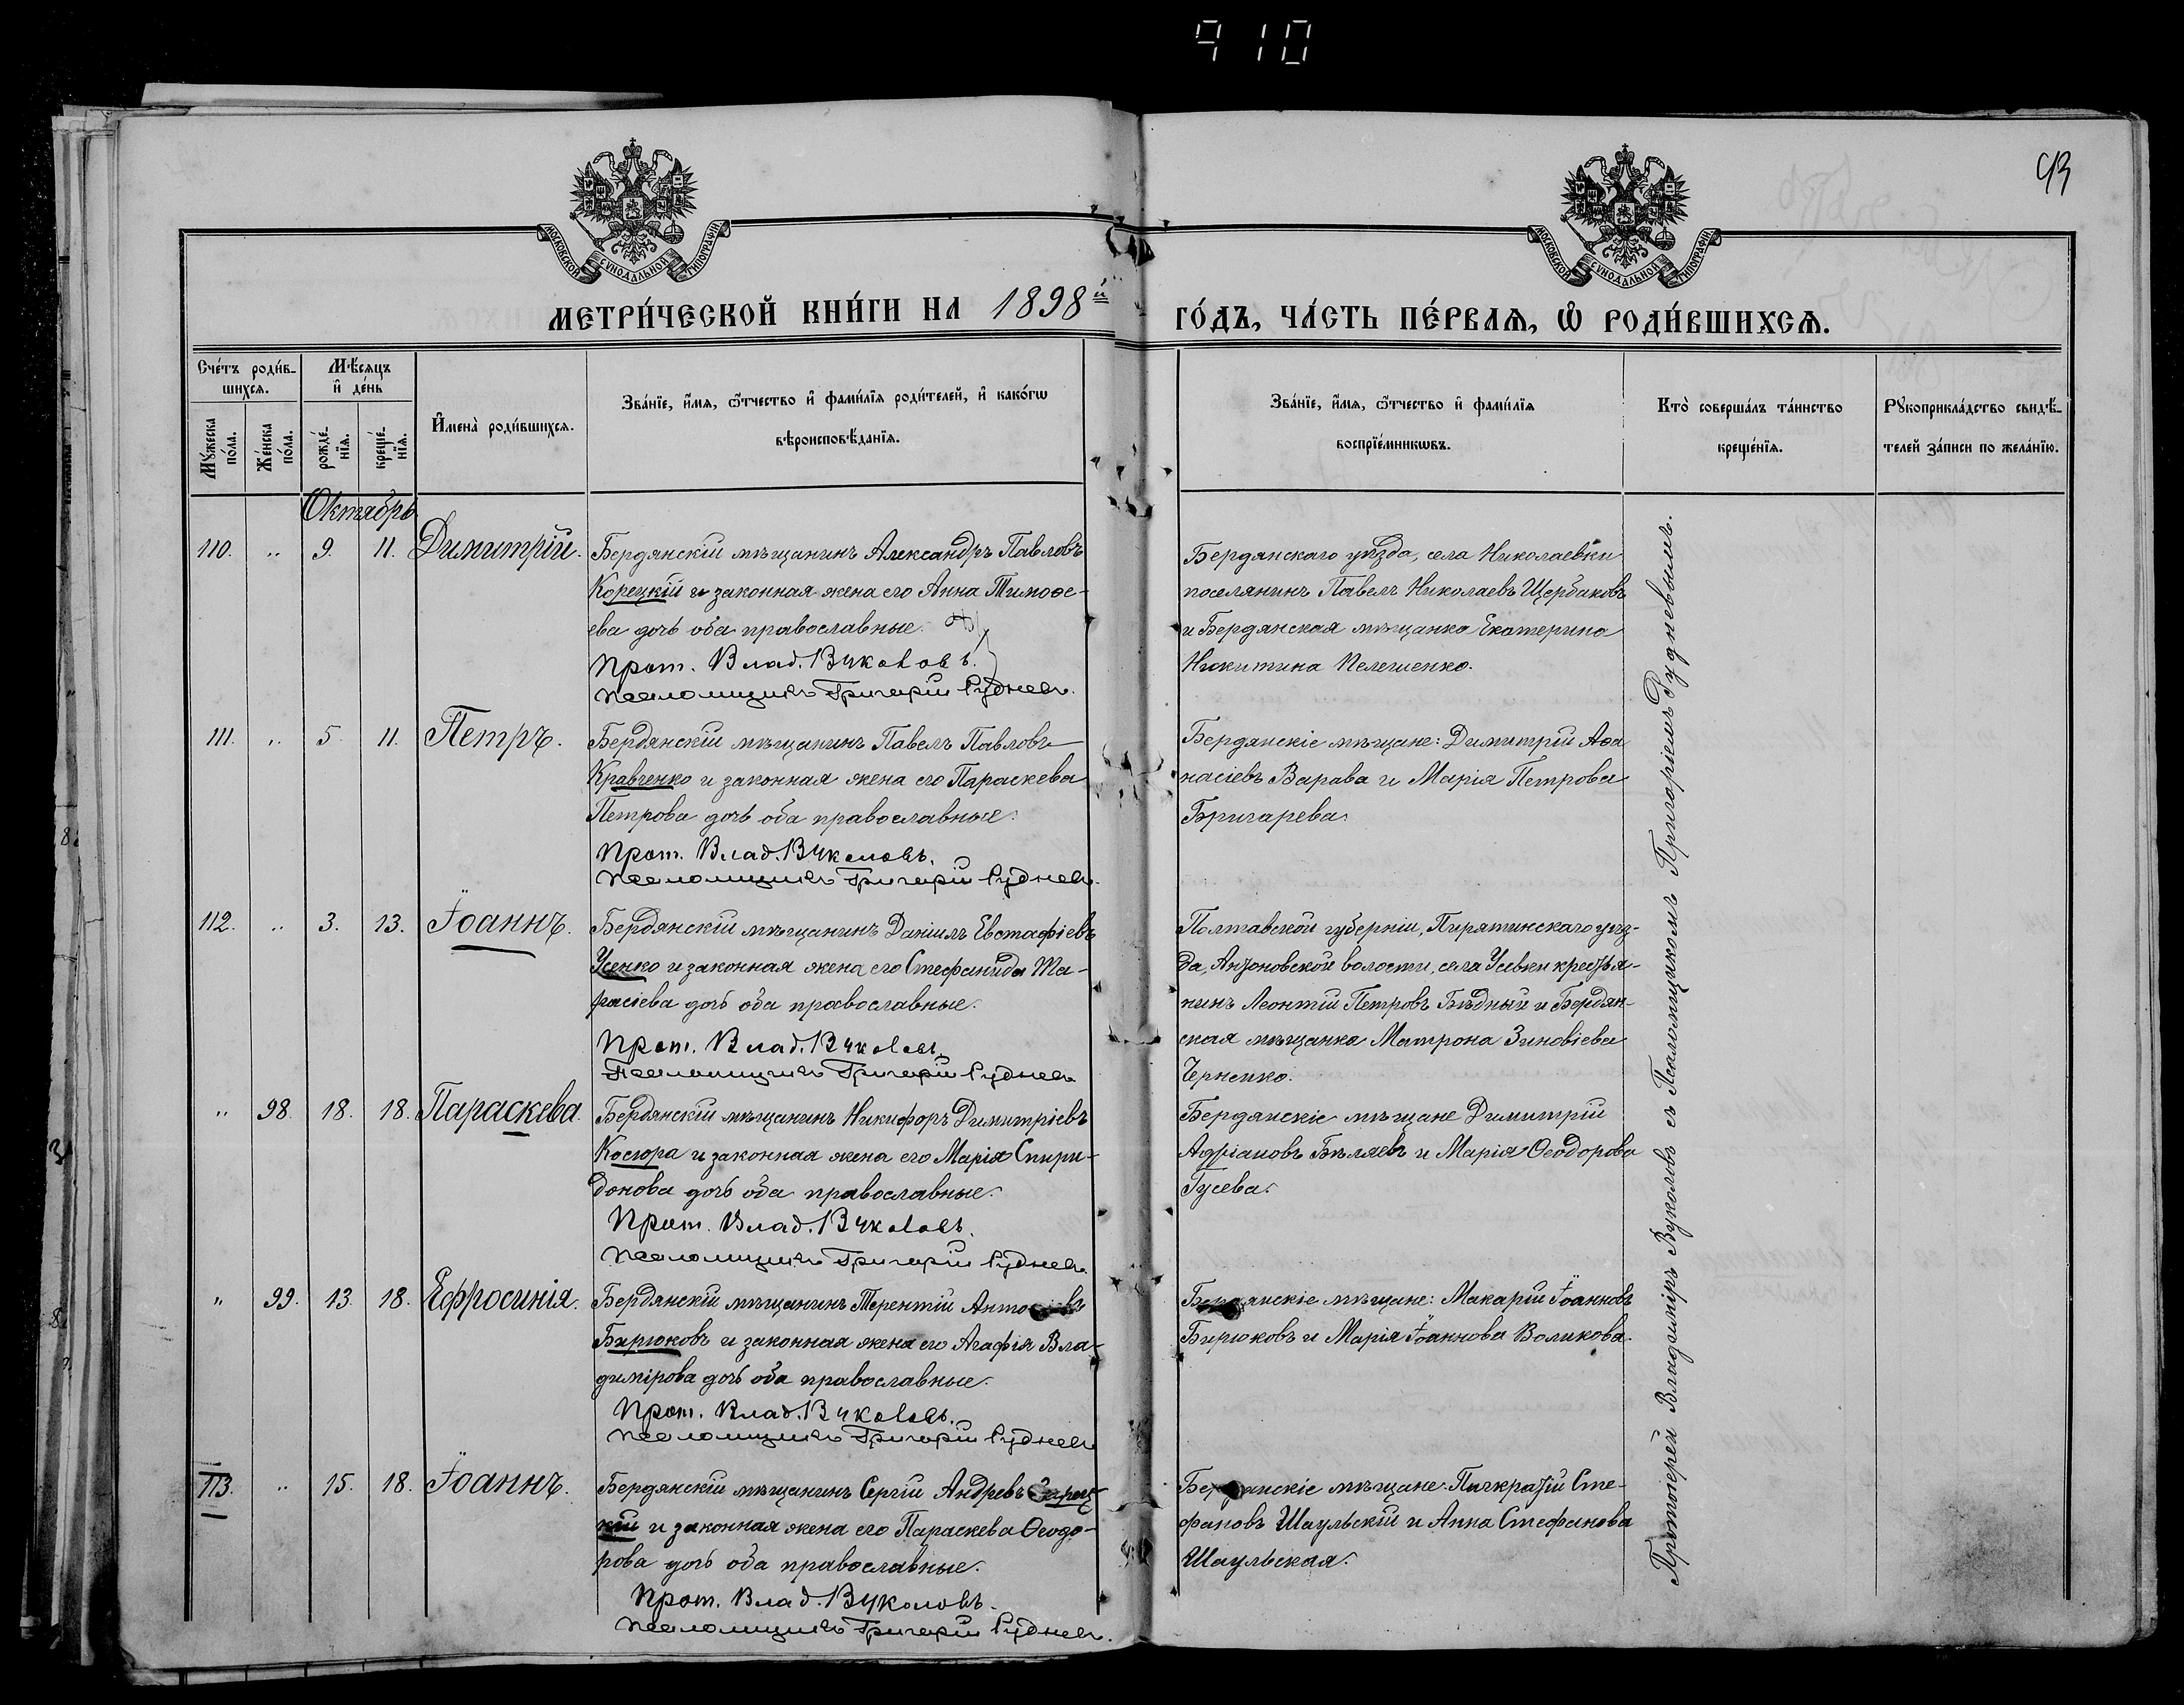 910
93
МОСКОВСКОЙ СУНОДАЛЬНОЙ ТИПОГРАФІИ
МОСКОВСКОЙ СУНОДАЛЬНОЙ ТИПОГРАФІИ
МЕТРИ́ЧЕСКОЙ КНИ́ГИ НА 1898й ГО́ДЪ, ЧА́СТЬ ПЕ́РВАЯ, Ѡ РОДИ́ВШИХСЯ.
Сче́тъ роди́в-
шихся.
Мѣ́сяцъ
и҆ де́нь
Мꙋ́жеска
по́ла.
Же́нска
по́ла.
рожде́-
нїя.
креще́-
нїя.
И҆мена̀ роди́вшихся.
Зва́нїе, и҆́мя, ѻ҆́тчество и҆ фами́лїя роди́телей, и҆ како́гѡ
вѣроисповѣ́данїя.
Зва́нїе, и҆́мя, ѻ҆́тчество и҆ фами́лїя
воспрїе́мникѡвъ.
Кто̀ соверша́лъ та́инство
креще́нїя.
Рꙋкоприкла́дство свидѣ́-
телей за́писи по жела́нїю.
Октябрь
110. „ 9. 11. Димитрій.
Бердянскій мѣщанинъ Александръ Павловъ
Корецкій и законная жена его Анна Тимоѳе-
ева дочь оба православные.
Прот. Влад. Вуколовъ.
Псаломщикъ Григорій Рудневъ.
Бердянскаго уѣзда, села Николаевки
поселянинъ Павелъ Николаевъ Щербаковъ
и Бердянская мѣщанка Екатерина
Никитина Пелешенко.
111. „ 5. 11. Петръ.
Бердянскій мѣщанинъ Павелъ Павловъ
Кравченко и законная жена его Параскева
Петрова дочь оба православные.
Прот. Влад. Вуколовъ.
Псаломщикъ Григорій Рудневъ.
Бердянскіе мѣщане: Димитрій Аѳа
насіевъ Варава и Марія Петрова
Бригарева.
112. „ 3. 13. Іоаннъ.
Бердянскій мѣщанинъ Даніилъ Евстафіевъ
Усенко и законная жена его Стефанида Та-
расіева дочь оба православные.
Прот. Влад. Вуколовъ.
Псаломщикъ Григорій Рудневъ.
Полтавской губерніи, Пирятинскаго уѣз-
да, Антоновской волости, села Усевки крестья-
нинъ Леонтій Петровъ Бѣдный и Бердян-
ская мѣщанка Матрона Зиновіева
Черненко.
„ 98. 18. 18. Параскева.
Бердянскій мѣщанинъ Никифоръ Димитріевъ
Косюра и законная жена его Марія Спири-
донова дочь оба православные.
Прот. Влад. Вуколовъ.
Псаломщикъ Григорій Рудневъ.
Бердянскіе мѣщане Димитрій
Адріановъ Бѣляевъ и Марія Ѳеодорова
Гусева.
„ 99. 13. 18. Ефросинія.
Бердянскій мѣщанинъ Терентій
Бирюковъ и законная жена его Агафія Вла-
димірова дочь оба православные.
Прот. Влад. Вуколовъ.
Псаломщикъ Григорій Рудневъ
Бердянскіе мѣщане: Макарій Іоанновъ
Бирюковъ и Марія Іоаннова Воликова.
113. „ 15. 18. Іоаннъ.
Бердянскій мѣщанинъ Сергій Андреевъ Зарец-
кій и законная жена его Параскева Ѳеодо-
рова дочь оба православные.
Прот. Влад. Вуколовъ.
Псаломщикъ Григорій Рудневъ.
Бердянскіе мѣщане: Панкратій Сте-
фановъ Шаульскій и Анна Стефанова
Шаульская.
Протоіерей Владиміръ Вуколовъ съ Псаломщикомъ Григоріемъ Рудневымъ.